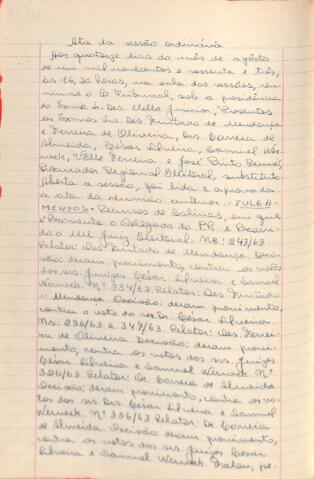 Ata da sessão ordinária
Aos quatorze dias do mês de agôsto
de um mil novecentos e sessenta e três,
às 16,30 horas, na sala das sessões, reu-
niu-se o Tribunal, sob a presidência
do Exmo. Sr. Des. Mello Junior, Presentes
os Exmos. Srs. Des. Furtado de Mendonça
e Ferreira de Oliveira, Drs. Correia de
Almeida, César Silveira, Samuel Wer-
neck, Valle Ferreira e José Pinto
Procurador Regional Eleitoral, substituto.
Aberta a sessão, foi lida e aprovada
a ata da reunião anterior. JULGA-
MENTOS - Recursos de Salinas, em que
é Recorrente o Delegado do P.R. e Recorri-
do o M. Juiz Eleitoral. Nº: 243/63
Relator: Des. Furtado de Mendonça. Deci-
são: deram provimento, contra os votos
dos srs. juizes César Silveira e Samuel
Werneck. Nº 354/63. Relator: Des. Furtado
de Mendonça. Decisão: deram provimento,
contra o voto do sr. Dr. César Silveira.
Ns: 236/63 e 347/63. Relator: Des. Ferrei-
ra de Oliveira. Decisão: deram provi-
mento, contra os votos dos srs. juizes
César Silveira e Samuel Werneck. Nº
326/63. Relator: Dr. Correia de Almeida
Decisão: deram provimento, contra os vo-
tos dos srs. Drs. César Silveira e Samuel
Werneck. Nº 356/63. Relator: Dr. Correia
de Almeida. Decisão: deram provimento,
contra os votos dos srs. juizes César
Silveira e Samuel Werneck. Falou, pe-